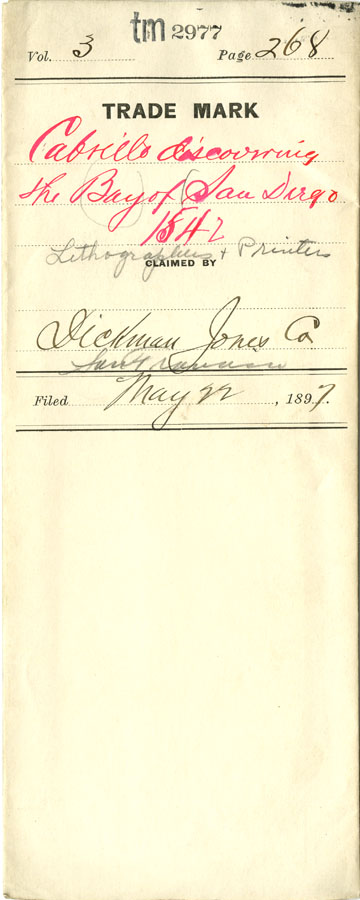 tm 2977
Vol. 3 Page 268
TRADE MARK
Cabrillo discovering
the Bay of San Diego
1542
Lithographers & Printers
CLAIMED BY
Dickman Jones Co.
San Francisco
Filed May 22, 1897.